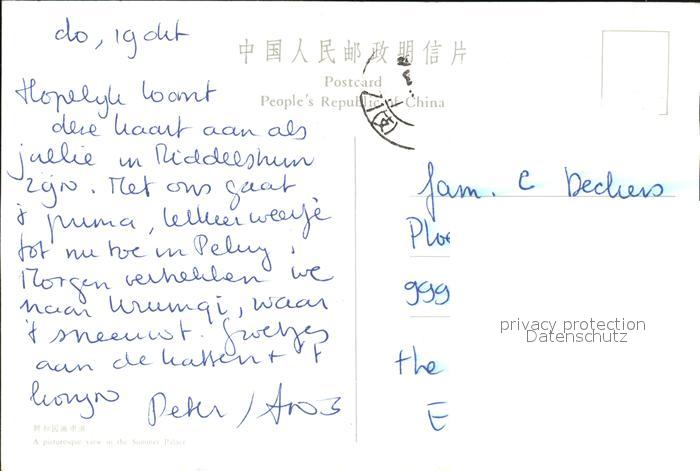 do, 19 okt
中国人民邮政明信片
Postcard
People's Republic of China
Hopelijk komt
deze kaart aan als
jullie in Middelstum
zijn. Met ons gaat
't prima, lekker weertje
tot nu toe in Peking.
Morgen vertrekken we
naar Urumqi, waar
't sneeuwt. Groetjes
aan de katten + 't
konijn
Peter /
fam. C Deckers
Plo
999
the
E
privacy protection
Datenschutz
A picturesque view in the Summer Palace